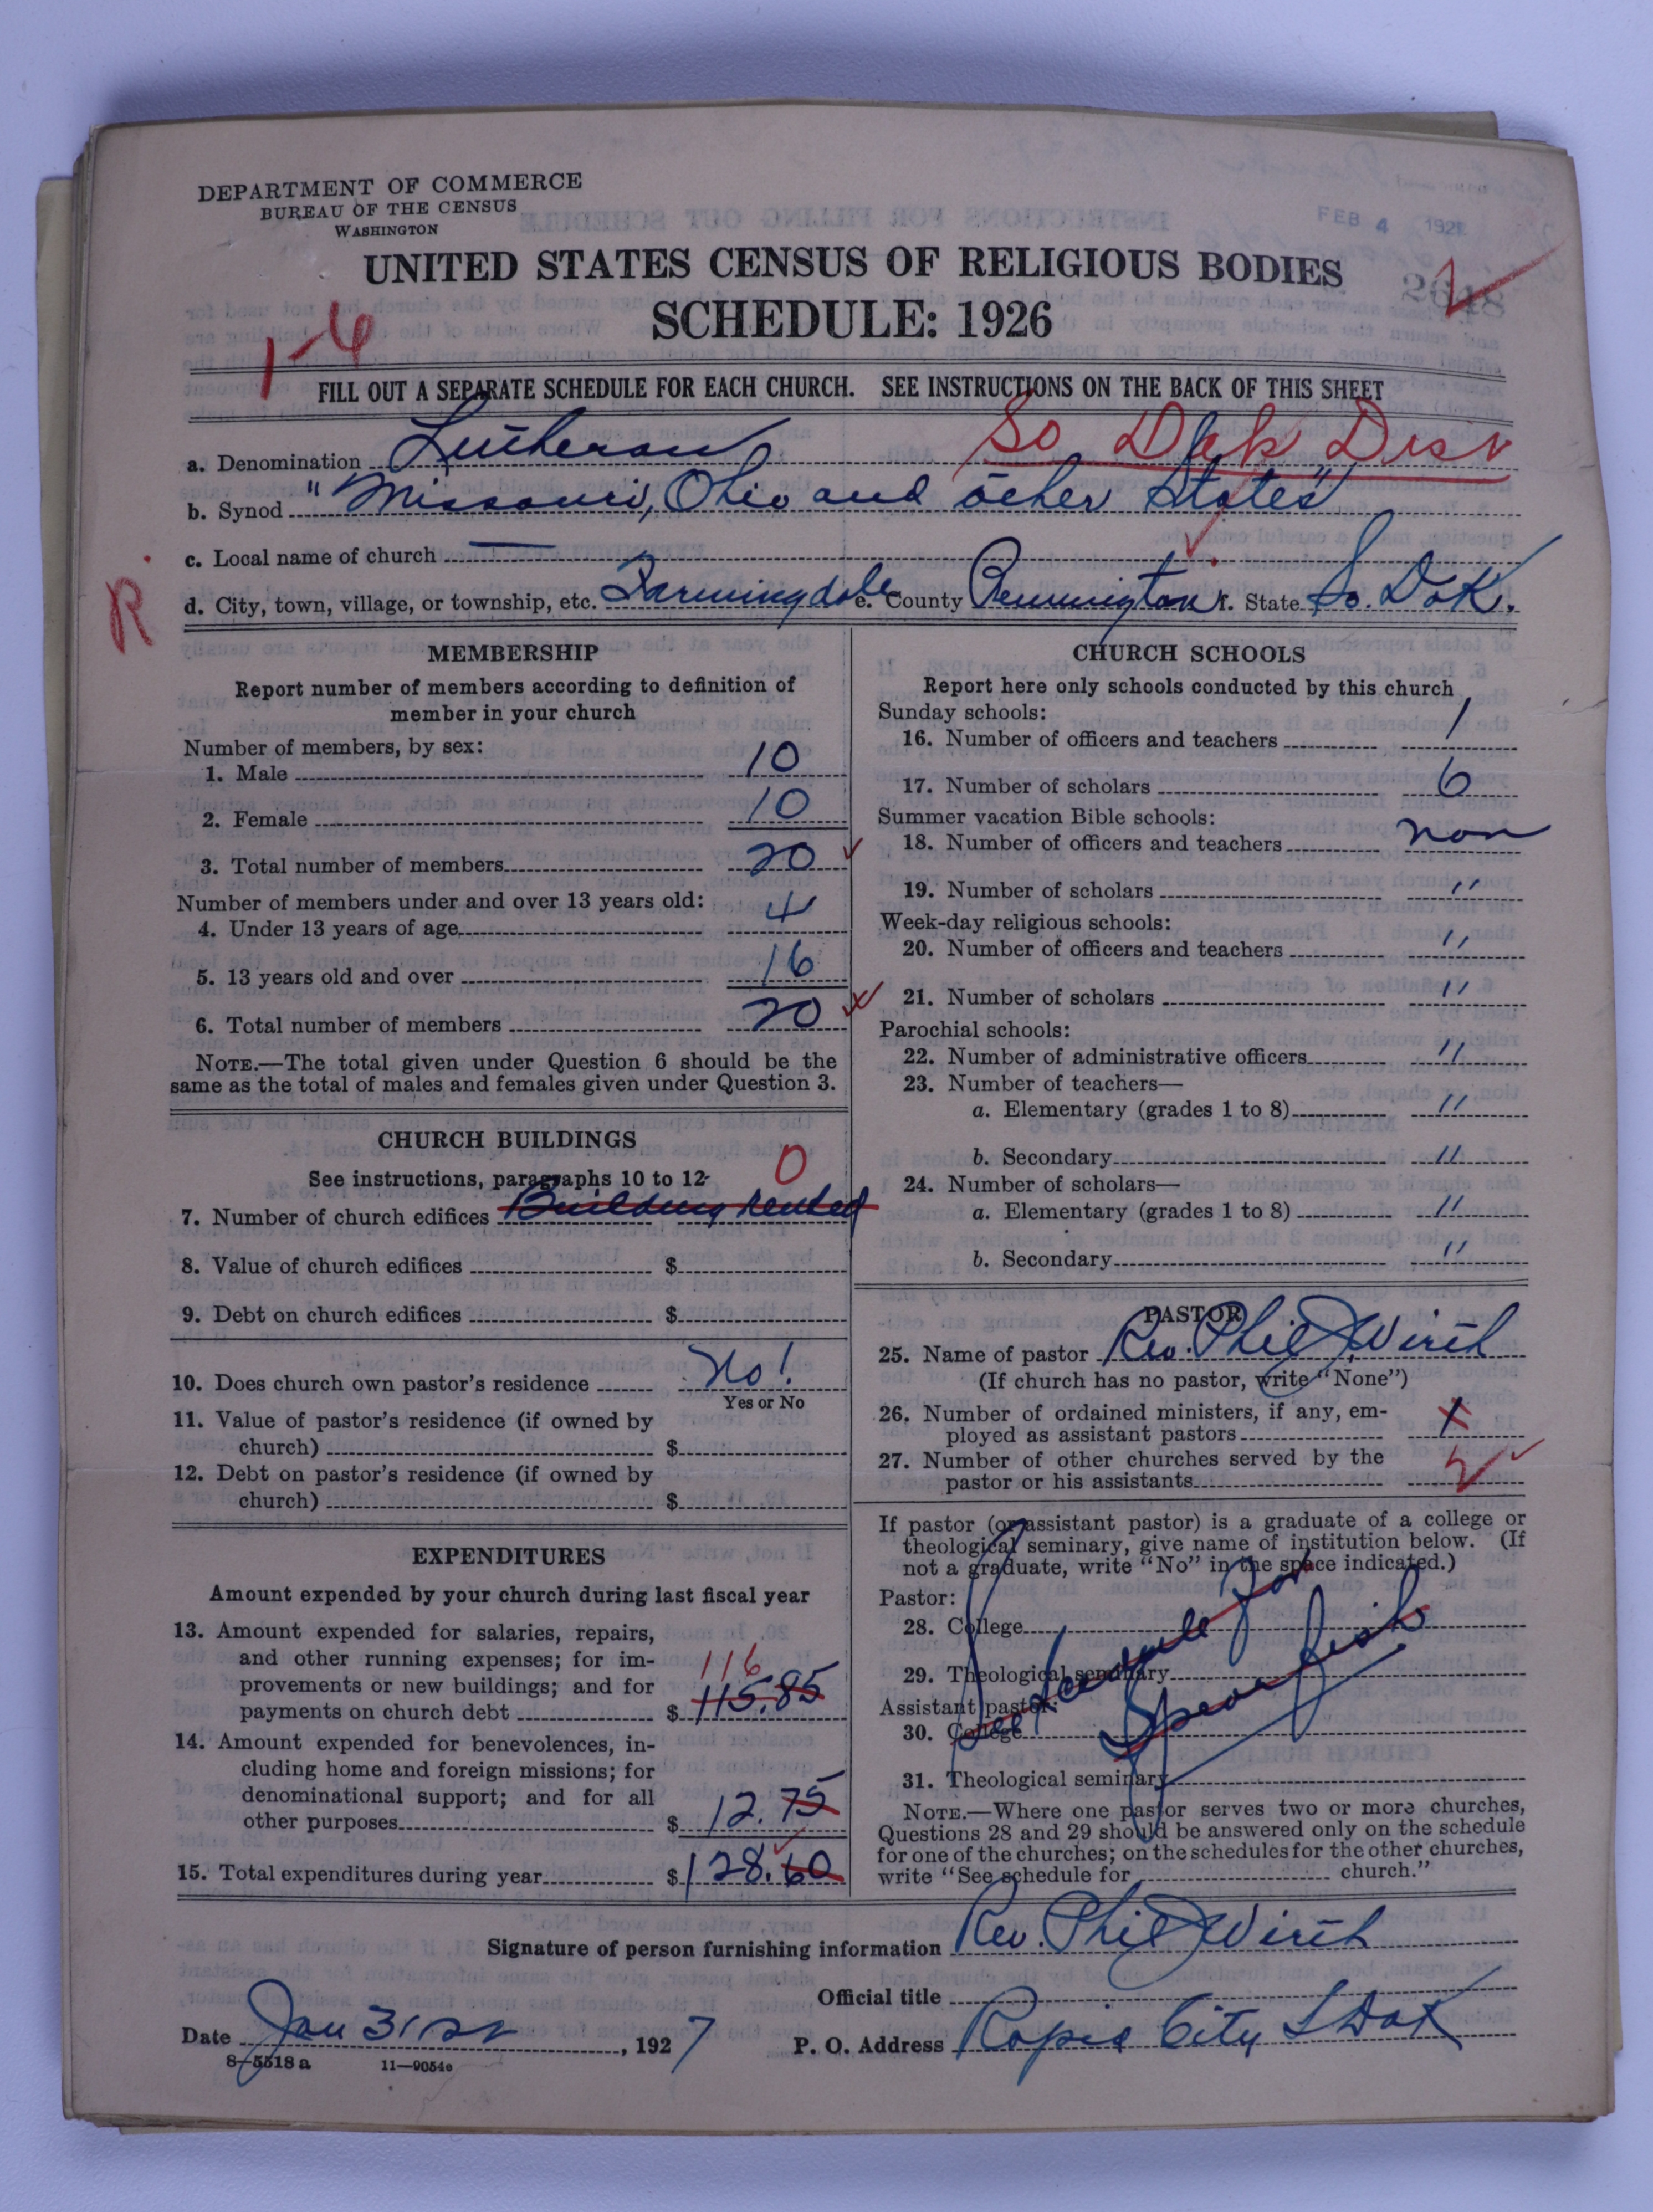 DEPARTMENT OF COMMERCE
BUREAU OF THE CENSUS
WASHINGTON
FEB 4 1927
UNITED STATES CENSUS OF RELIGIOUS BODIES
SCHEDULE: 1926
1-6
FILL OUT A SEPARATE SCHEDULE FOR EACH CHURCH. SEE INSTRUCTIONS ON THE BACK OF THIS SHEET
So Dak Dist
a. Denomination Lutheran
b. Synod "Missouri, Ohio and other States"
c. Local name of church —
R
d. City, town, village, or township, etc. Farmingdale e. County Pennington f. State So. Dak.
MEMBERSHIP
Report number of members according to definition of
member in your church
Number of members, by sex:
1. Male 10
2. Female 10
3. Total number of members 20
Number of members under and over 13 years old:
4. Under 13 years of age 4
5. 13 years old and over 16
6. Total number of members 20
NOTE.—The total given under Question 6 should be the
same as the total of males and females given under Question 3.
CHURCH BUILDINGS
See instructions, paragraphs 10 to 12
0
7. Number of church edifices Building rented
8. Value of church edifices $
9. Debt on church edifices $
10. Does church own pastor's residence No!
Yes or No
11. Value of pastor's residence (if owned by
church) $
12. Debt on pastor's residence (if owned by
church) $
EXPENDITURES
Amount expended by your church during last fiscal year
13. Amount expended for salaries, repairs,
and other running expenses; for im-
provements or new buildings; and for
116
payments on church debt $ 115.85
14. Amount expended for benevolences, in-
cluding home and foreign missions; for
denominational support; and for all
other purposes $ 12.75
15. Total expenditures during year $ 128.60
CHURCH SCHOOLS
Report here only schools conducted by this church
Sunday schools:
16. Number of officers and teachers 1
17. Number of scholars 6
Summer vacation Bible schools:
18. Number of officers and teachers non
19. Number of scholars "
Week-day religious schools:
20. Number of officers and teachers "
21. Number of scholars "
Parochial schools:
22. Number of administrative officers "
23. Number of teachers—
a. Elementary (grades 1 to 8) "
b. Secondary "
24. Number of scholars—
a. Elementary (grades 1 to 8) "
b. Secondary "
PASTOR
25. Name of pastor Rev. Phil J Wirth
(If church has no pastor, write "None")
26. Number of ordained ministers, if any, em-
ployed as assistant pastors
27. Number of other churches served by the
pastor or his assistants
If pastor (or assistant pastor) is a graduate of a college or
theological seminary, give name of institution below. (If
not a graduate, write "No" in the space indicated.)
Pastor:
28. College
29. Theological seminary
Assistant pastor:
30. College
31. Theological seminary
See Schedule for
Spearfish
NOTE.—Where one pastor serves two or more churches,
Questions 28 and 29 should be answered only on the schedule
for one of the churches; on the schedules for the other churches,
write "See schedule for church."
Signature of person furnishing information Rev. Phil J Wirth
Official title
Date Jan 31st, 1927 P. O. Address Rapid City S Dak
8-5518 a 11—9054e